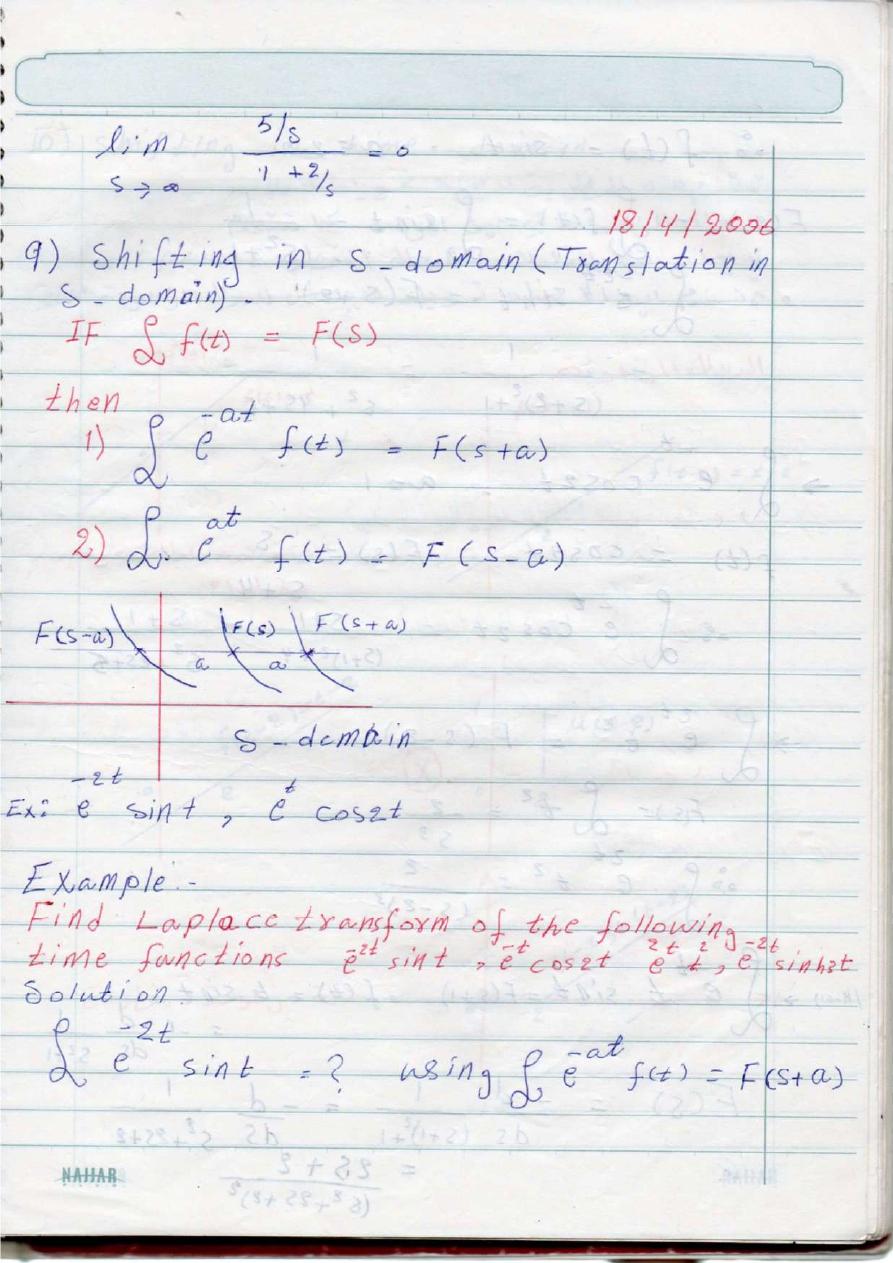 lim 5/s / 1 + 2/s = 0
s → ∞
18/4/2006
9) Shifting in S-domain (Translation in
S-domain).
IF ℒ f(t) = F(S)
then
1) ℒ e^-at f(t) = F(s+a)
2) ℒ e^at f(t) = F(s-a)
F(s-a) F(s) F(s+a)
a a
S-domain
Ex: e^-2t sint, e^t cos2t
Example:-
Find Laplace transform of the following
time functions e^-2t sint, e^-t cos2t e^2t t^2, e^-2t sinh3t
Solution
ℒ e^-2t sint = ? using ℒ e^-at f(t) = F(s+a)
NAJJAR